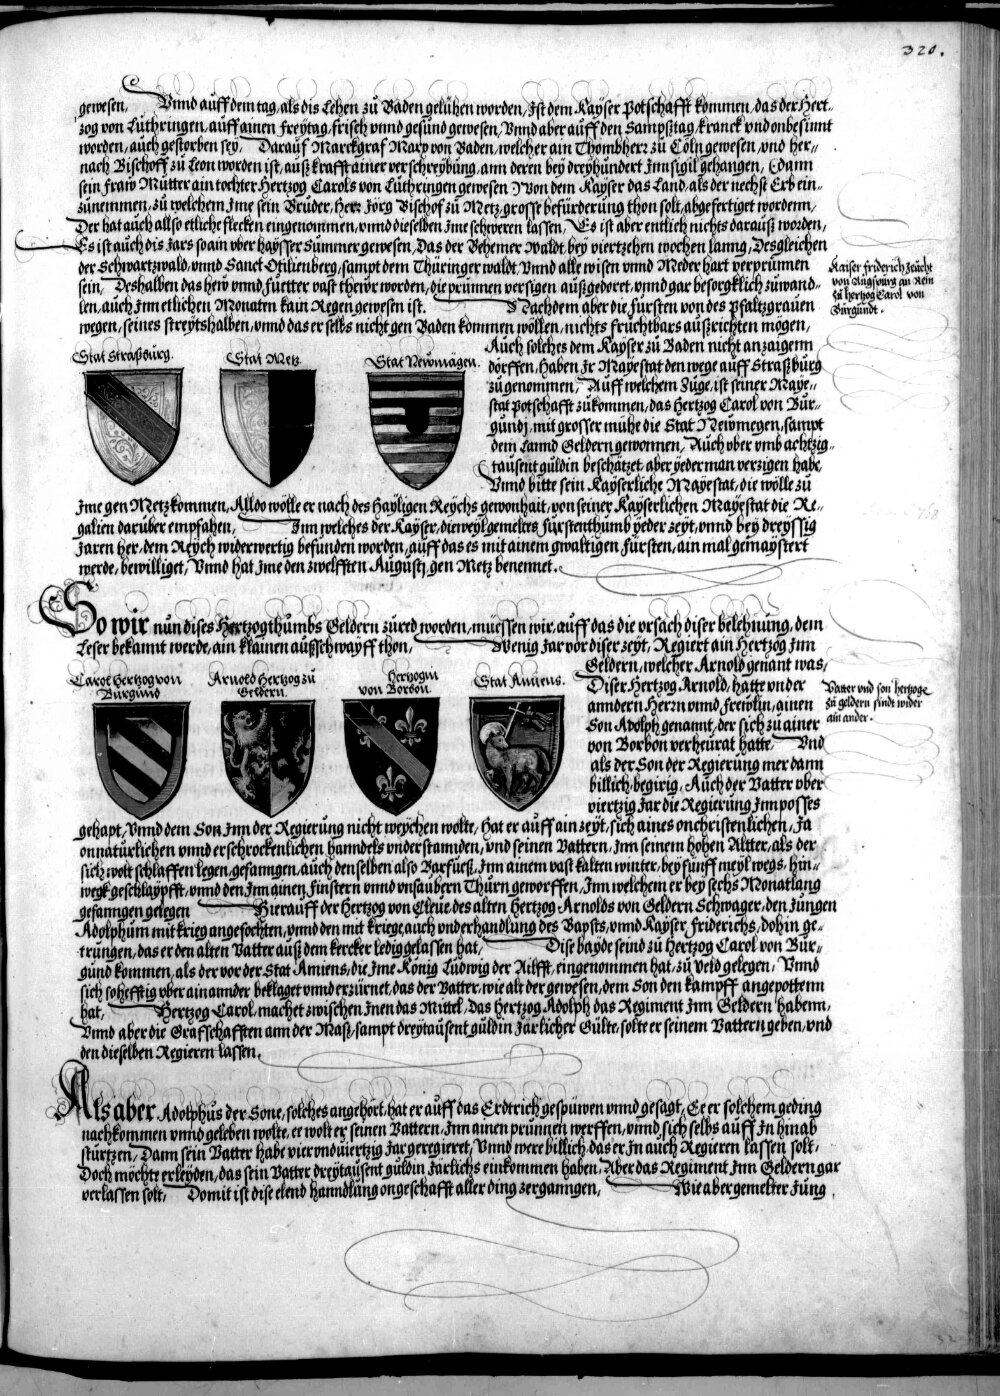 320.
gewesen, Vnnd auff dem tag, als dis Lehen zů Baden gelühen worden, Ist dem Kayser Potschafft kommen, das der Hert-
zog von Lüthringen, auff ainen freytag, frisch vnnd gesünd gewesen, Vnnd aber auff den Sampßtag, kranck vnd onbesünnt
worden, auch gestorben sey, Darauf Marckgraf Marx von Baden, welcher ain Thombherr zu Cöln gewesen, vnd her-
nach Bischoff zů Leon worden ist, auß krafft ainer verschreybüng, ann deren bey dreyhündert Innsigil gehangen, (dann
sein fraw Mütter ain tochter Hertzog Carols von Lüthringen gewesen) Von dem Kayser das Land, als der nechst Erb ein-
zünemmen, zů welchem Ime sein Brüder, Herr Jörg Bischof zů Metz, grosse befürderüng thon solt, abgefertiget wordenn,
Der hat auch allso etliche flecken eingenommen, vnnd dieselben Ime schweren lassen, Es ist aber entlich nichts darauß worden,
Es ist auch dis Jars so ain vber haysser Summer gewesen, Das der Behemer Waldt bey viertzehen wochen lanng, Desgleichen
der Schwartzwald, vnnd Sanct Otilienberg, sampt dem Thüringer waldt, Vnnd alle wisen vnnd Meder hart verprunnen
sein, Deshalben das hew vnnd fuetter vast thewr worden, die prünnen versigen außgedoret, vnnd gar besorgklich zuwand-
len, auch Inn etlichen Monaten kain Regen gewesen ist. Nachdem aber die fürsten von des Pfaltzgrauen
wegen, seines streytshalben, vnnd das er selbs nicht gen Baden kommen wöllen, nichts fruchtbars außrichten mögen,
Kaiser friderich zeücht
von Augspurg an Rein
zů hertzog Carol von
Bürgündt.
Stat Straßburg.
Stat Metz
Stat Newmägen.
Auch solches dem Kayser zů Baden nicht anzaigenn
dörffen, Haben Ir Mayestat den wege auff Straßburg
zůgenommen, Auff welchem Züge, ist seiner Maye-
stat potschafft zůkommen, das Hertzog Carol von Bur-
gündj, mit grosser mühe die Stat Newmegen, sampt
dem Lannd Geldern gewonnen, Auch vber vmb achtzig-
tausent güldin beschätzet, aber yederman verzigen habe,
Vnnd bitte sein Kayserliche Mayestat, die wölle zů
Ime gen Metz kommen, Alldo wölle er nach des Hayligen Reychs gewonhait, von seiner Kayserlichen Mayestat die Re-
galien darüber empfahen, Inn welches der Kayser, dieweyl gemeltes fürstenthumb yeder zeyt, vnnd bey dreyssig
Jaren her, dem Reych widerwertig befunden worden, auff das es mit ainem gwaltigen fürsten, ain mal gemaystert
werde, bewilliget, Vnnd hat Ime den zwelfften Augustj, gen Metz benennet.
So wir nün dises Hertzogthümbs Geldern züred worden, müessen wir, auff das die vrsach diser belehnung, dem
Leser bekannt werde, ain klainen außschwayff thon, Wenig Jar vor diser zeyt, Regiert ain Hertzog Inn
Geldern, welcher Arnold genant was,
Carol Hertzog von
Bürgünd
Arnold Hertzog zů
Geldern.
Hertzogin
von Borbon.
Stat Amiens.
Diser Hertzog Arnold, hatte vnder
anndern Herrn vnnd frewlin, ainen
Son Adolph genannt, der sich zů ainer
von Borbon verheürat hatte, Vnd
als der Son der Regierung mer dann
billich, begirig, Auch der Vatter vber
viertzig Jar die Regierung Inn posses
Vatter vnd son hertzoge
zů geldern sindt wider
ain ander.
gehapt, Vnnd dem Son Inn der Regierung nicht weychen wolte, Hat er auff ain zeyt, sich aines onchristenlichen, Ja
onnatürlichen vnnd erschrockenlichen hanndels vnderstannden, vnd seinen Vattern, Inn seinem hohen Altter, als der
sich wolt schlaffen legen, gefanngen, auch denselben also Barfüeß, Inn ainem vast kalten winter, bey fünff meyl wegs, hin-
wegk geschlaypfft, vnnd den Inn ainen finstern vnnd vnsaubern Thurn geworffen, Inn welchem er bey sechs Monat lang
gefanngen gelegen Hierauff der Hertzog von Cleue des alten Hertzog Arnolds von Geldern Schwager, den Jüngen
Adolphum mit krieg angefochten, vnnd den mit kriege, auch vnderhandlung des Bapsts, vnnd Kayser friderichs, dohin ge-
trüngen, das er den alten Vatter auß dem kercker ledig gelassen hat, Dise bayde seind zů Hertzog Carol von Bür-
günd kommen, als der vor der Stat Amiens, die Ime König Ludwig der Ailfft, eingenommen hat, zů veld gelegen, Vnnd
sich so hefftig vber ainannder beklaget vnnd erzürnet, das der Vatter, wie alt der gewesen, dem Son den kampff angepottenn
hat, Hertzog Carol, machet zwischen Inen das Mittel, das Hertzog Adolph das Regiment Inn Geldern habenn,
Vnnd aber die Grafschafften ann der Masz, sampt dreytausent güldin Järlicher Gülte, solte er seinem Vattern geben, vnd
den dieselben Regieren lassen.
Als aber Adolphus der Sone, solches angehört, hat er auff das Erdtrich gespüwen vnnd gesagt, Ee er solchem geding
nachkommen vnnd geleben wolte, er wolt er seinen Vattern, Inn ainen prünnen werffen, vnnd sich selbs auff In hinab
stürtzen, Dann sein Vatter habe vier vnd viertzig Jar geregieret, Vnnd were billich, das er In auch Regieren lassen solt,
Doch möchte er leyden, das sein Vatter dreytausent güldin Järlichs einkommen haben, Aber das Regiment Inn Geldern gar
verlassen solt, Domit ist dise elend hanndlung ongeschafft aller ding zerganngen, Wie aber gemelter Jüng